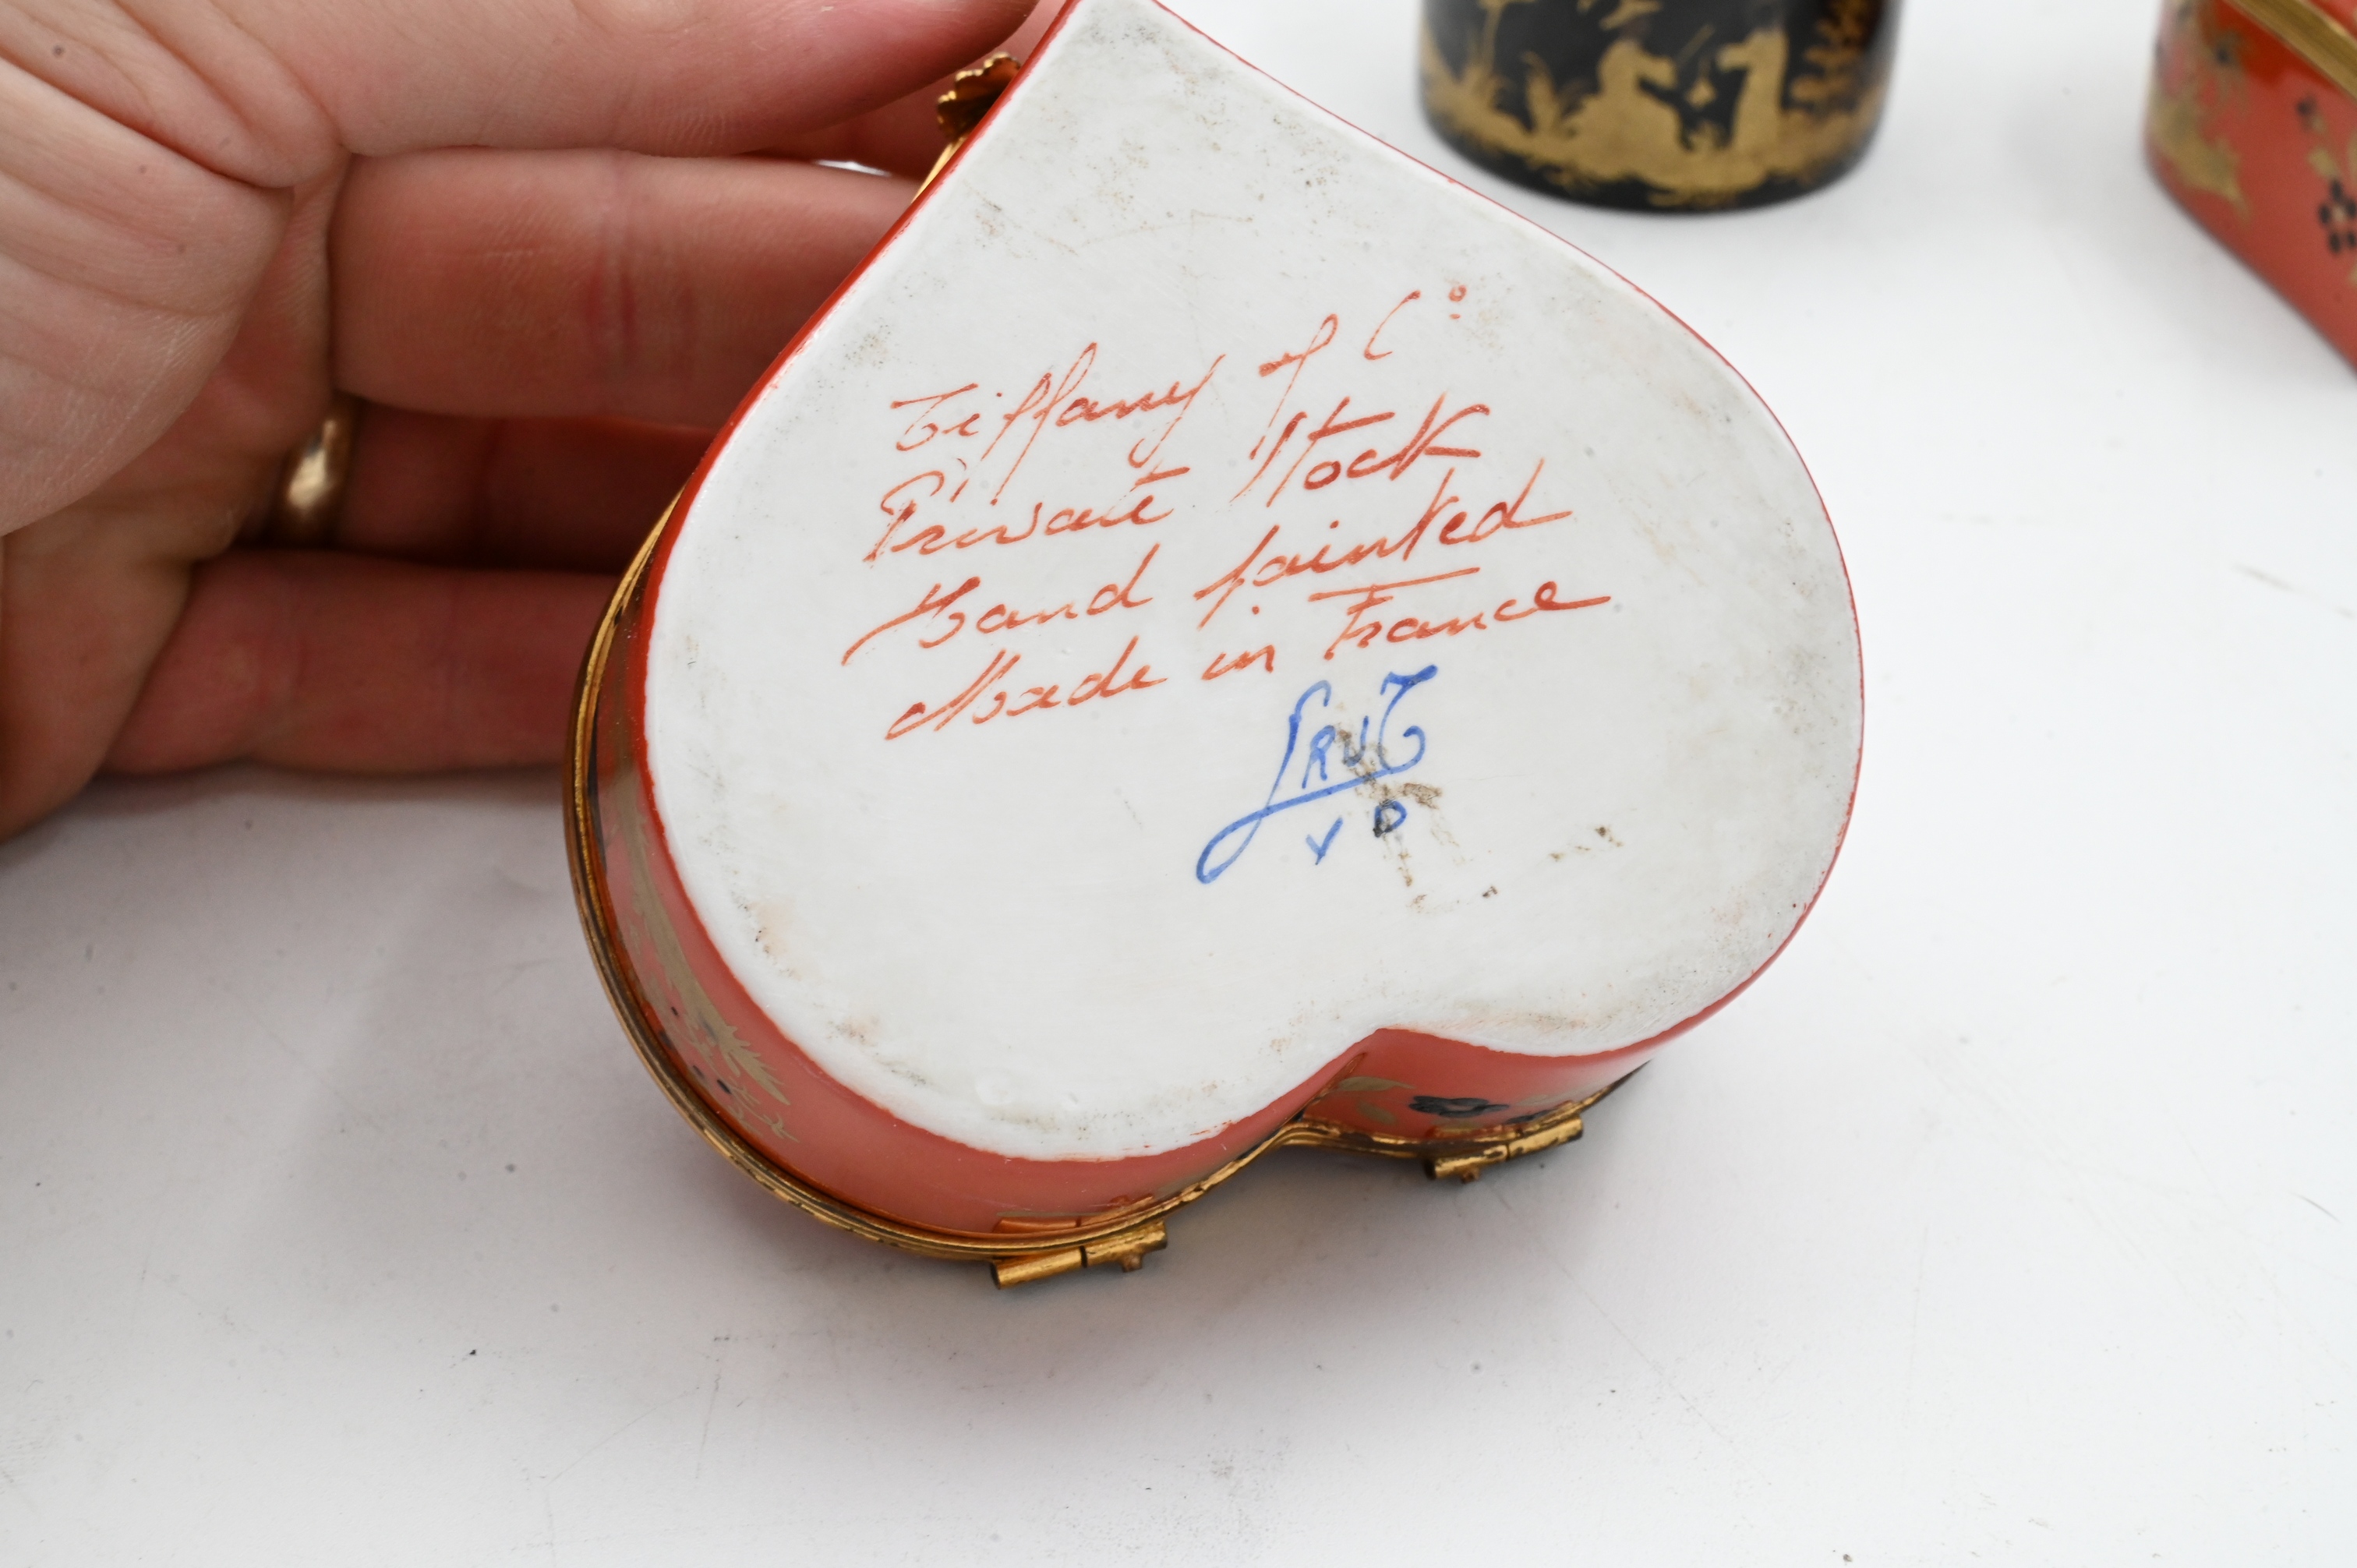 Tiffany & Co
Private Stock
Hand painted
Made in France